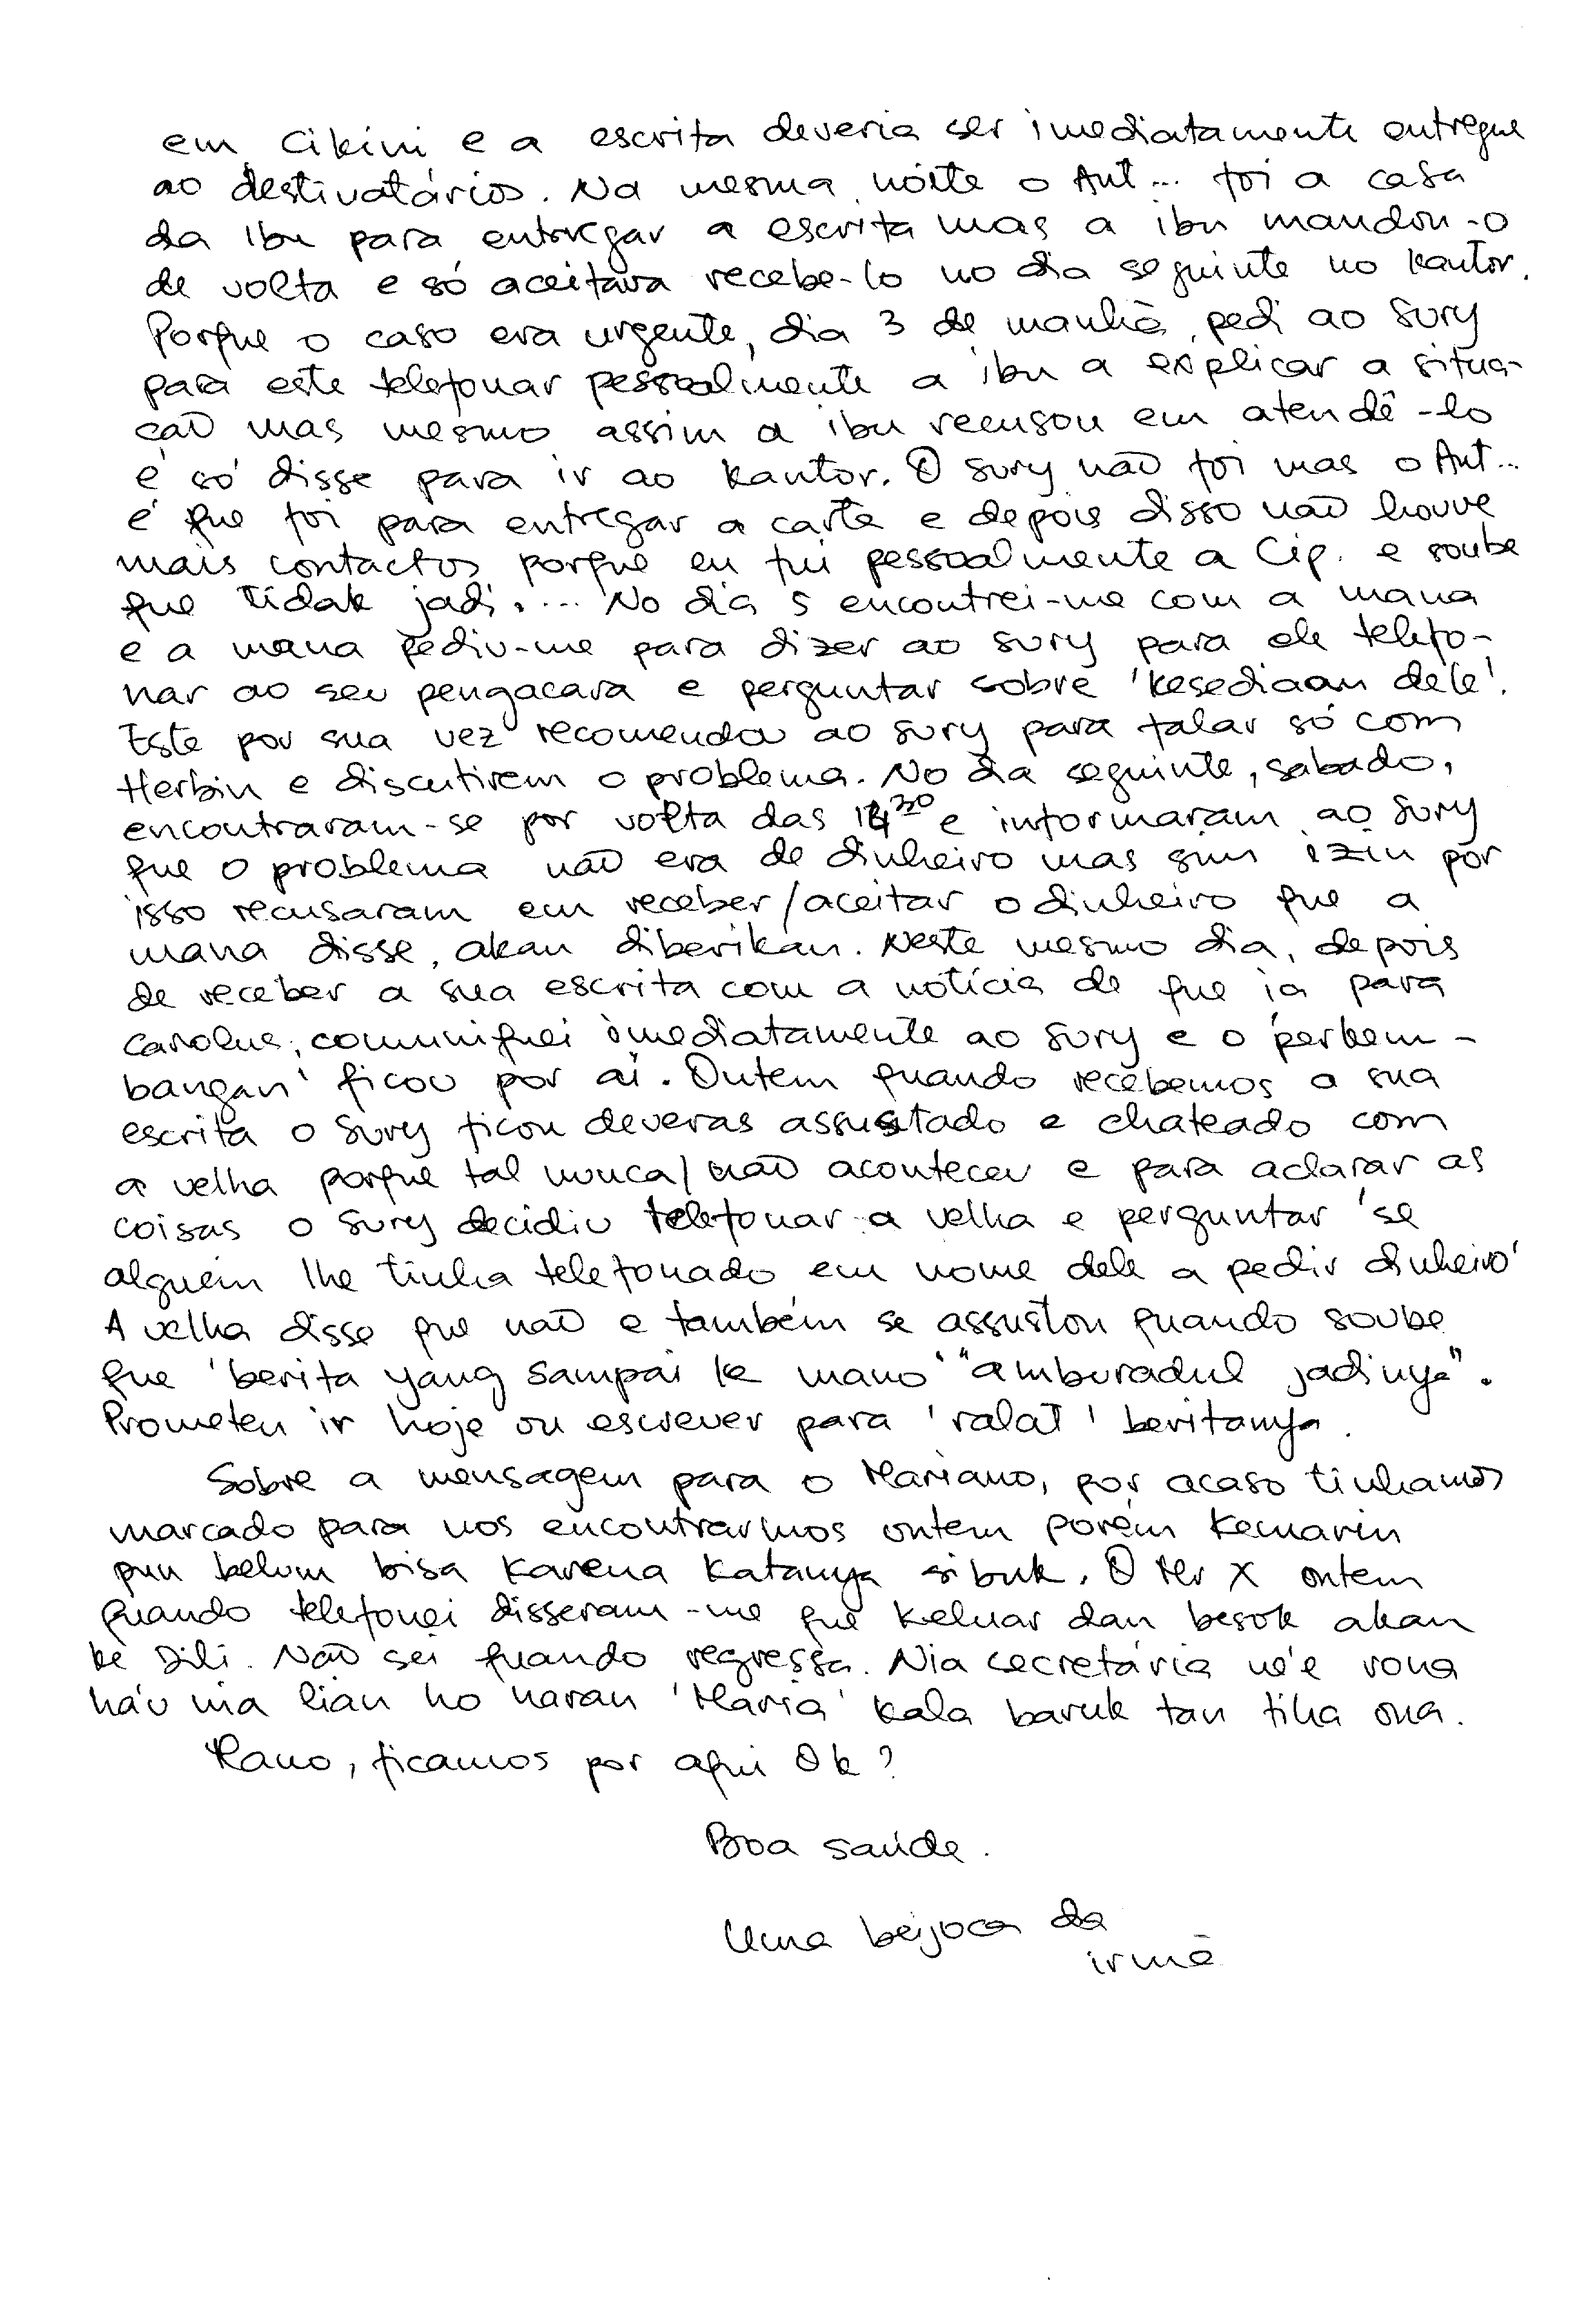 em Cikini e a escrita deveria ser imediatamente entregue
ao destinatários. Na mesma noite o Ant... foi a casa
da Ibu para entregar a escrita mas a ibu mandou-o
de volta e só aceitava recebe-lo no dia seguinte no kantor.
Porque o caso era urgente, dia 3 de manhã, pedi ao Sury
para este telefonar pessoalmente a ibu a explicar a situa-
ção mas mesmo assim a ibu recusou em atendê-lo
e só disse para ir ao kantor. O Sury não foi mas o Ant...
é que foi para entregar a carta e depois disso não houve
mais contactos porque eu fui pessoalmente a Cip. e soube
que tidak jadi.... No dia 5 encontrei-me com a mana
e a mana pediu-me para dizer ao Sury para ele telefo-
nar ao seu pengacara e perguntar sobre 'kesediaan dele'.
Este por sua vez recomendou ao Sury para falar só com
Herbin e discutirem o problema. No dia seguinte, sabado,
encontraram-se por volta das 14³⁰ e informaram ao Sury
que o problema não era de dinheiro mas sim izin por
isso recusaram em receber/aceitar o dinheiro que a
mana disse, akan diberikan. Neste mesmo dia, depois
de receber a sua escrita com a notícia de que ia para
Carolus, comuniquei imediatamente ao Sury e o 'perkem-
bangan' ficou por aí. Ontem quando recebemos a sua
escrita o Sury ficou deveras assustado e chateado com
a velha porque tal nunca/não aconteceu e para aclarar as
coisas o Sury decidiu telefonar a velha e perguntar 'se
alguém lhe tinha telefonado em nome dele a pedir dinheiro'
A velha disse que não e também se assustou quando soube
que 'berita yang sampai ke mano' "amburadul jadinya".
Prometeu ir hoje ou escrever para 'ralat' beritanya.
Sobre a mensagem para o Mariano, por acaso tinhamos
marcado para nos encontrarmos ontem porém kemarin
pun belum bisa karena katanya sibuk. O Mr X ontem
quando telefonei disseram-me que keluar dan besok akan
ke Dili. Não sei quando regressa. Nia secretária ne'e rona
ha'u nia lian ho naran 'Maria' kala baruk tan tiha ona.
Mano, ficamos por aqui Ok?
Boa saúde.
Uma beijoca da
irmã